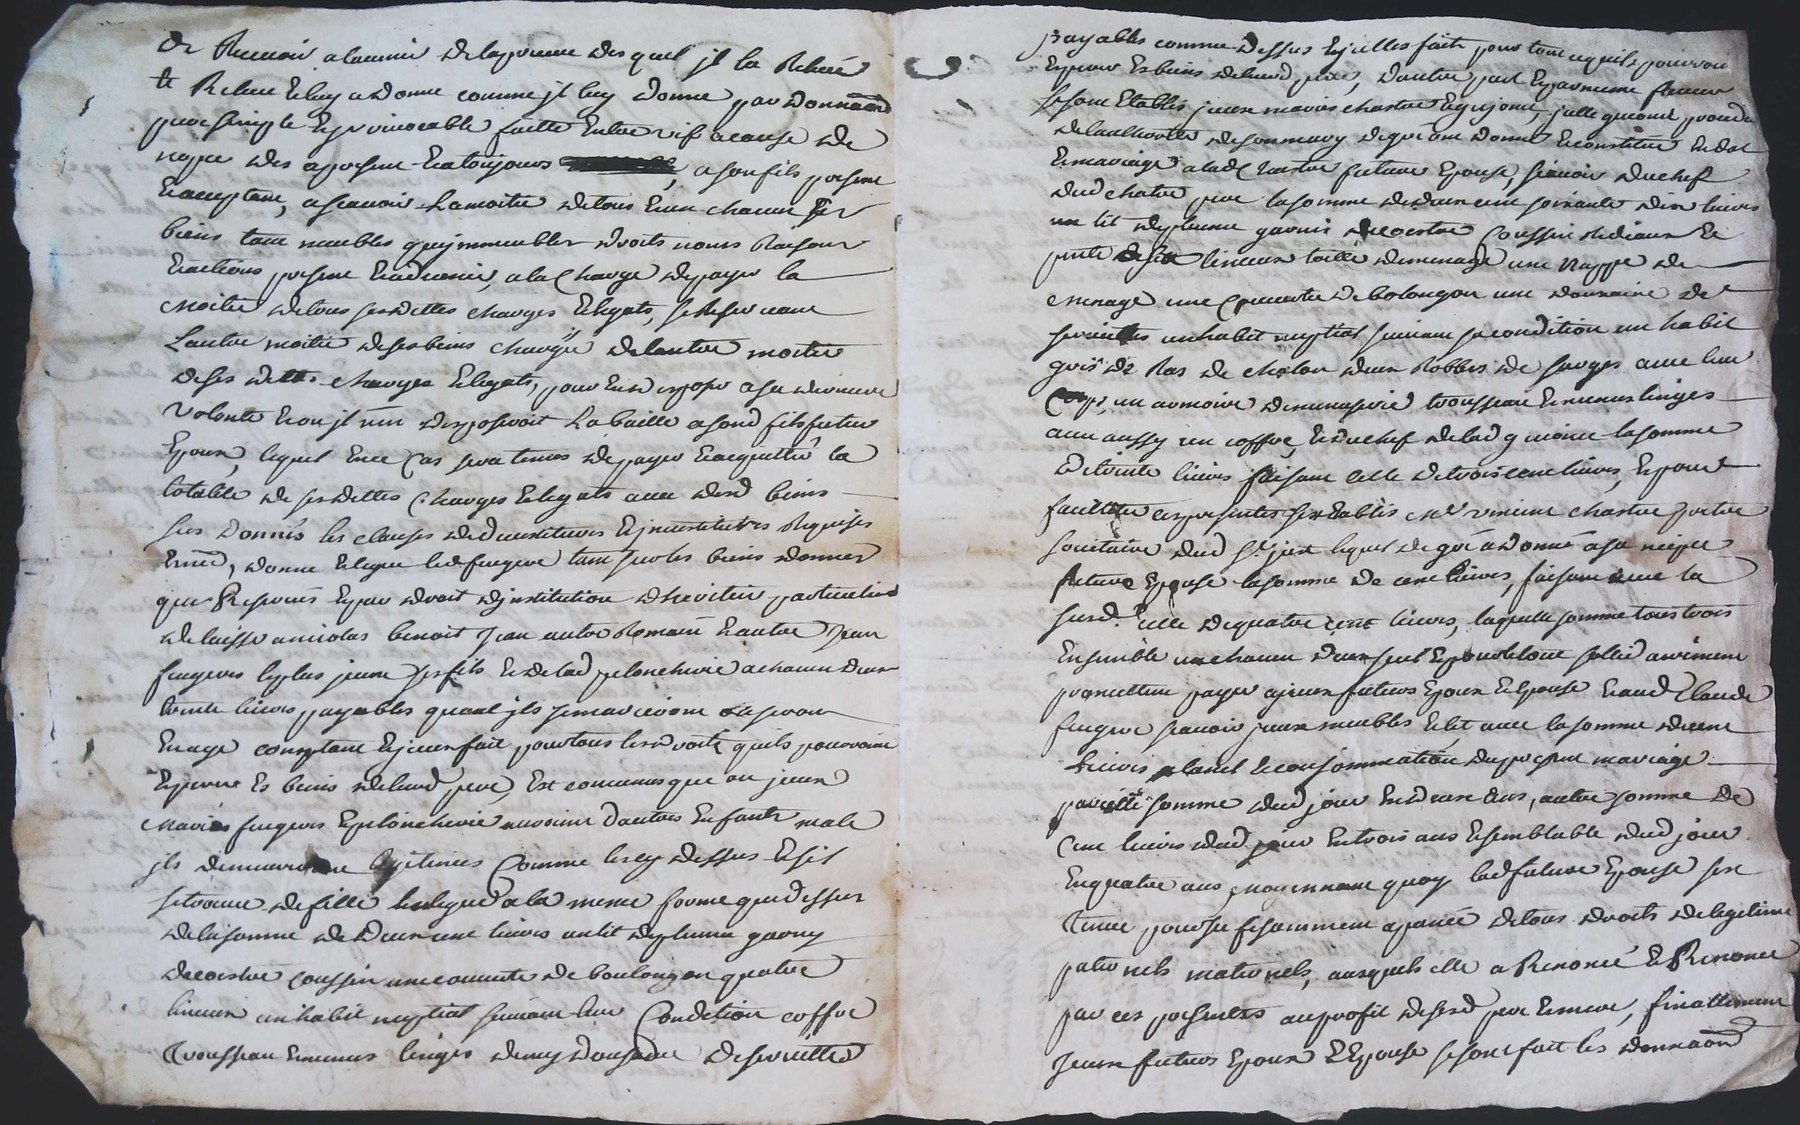 de Recevoir a lavenir de la preuve des quel jl la Relevé
et Releve et luy a donné comme jl luy donne par donnaon
pure simple et jrrevocable faitte entre vif a cause de
nopce des a present et a toujours a son fils present
et acceptant, a scavoir la moitie de tous et un chacun ses
biens tant meubles que jmmeubles droits noms Raisons
et actions present et advenir, a la charge de payer la
moitie de tous ses dettes charges et legats, se Reservant
L'autre moitie de ses biens chargé de lautre moitie
de ses dettes charges et legats, pour en disposer a sa derniere
volonte et ou jl n'en disposeroit La baille a sond fils futur
Epoux, lequel en ce cas sera tenus de payer et acquitter la
totalité de ses dettes charges et legats avec desd biens
sus donnés les clauses de destitutives et jnvestitives Requises
donne et legue led fugere tant sur les biens donnes
que Reservés et par droit d'jnstitution d'heritier particuliere
delaisse a nicolas benoit Jean autre Romain et autre Jean
fugeres le plus jeune ses fils et de lad peloncherie a chacun d'eux
trente livres payables quand jls se marieront ou seront
en age comptant et jceux fait pour tous les droits quils pouvoient
esperer es biens de leurd pere, Est convenus que ou jceux
mariés fugeres et peloncherie auroient d'autres Enfants male
jls demeureront legitimes comme les cy dessus et sil
se trouve de fille en la meme forme que dessus
de la somme de deux cent livres un lit de plume garny
de coestre coussin une couverte de boulongon quatre
linceux un habit nuptial suivant leur Condition coffre
Trousseau et menus linges demy dousaine de serviettes
payables comme dessus et jcelles fait pour tout ce quils pouvoient
esperer es biens de leurd pere, d'autre part et par meme faveur
se sont Etablis jceux mariés chastre et jcelle quiome procedant
de lauthorité de son mary de gré ont donné et constitué en dot
et mariage a lad chastre future Epouse, scavoir du chef
dud chatre pere la somme de deux cent soixante dix livres
un lit de plume garnis de coestre coussin Rideaux et
pente linceux toille de menage une Nappe de
menage une couverte de bolongon une dousaine de
serviettes un habit nuptial suivant sa condition un habit
gris de Ras de chalon deux Robbes de sarges avec leur
Corps, un armoire de menuserie trousseau et menus linges
avec aussy un coffre, et du chef de lad quiome la somme
de trente livres faisant celle de trois cent livres, et pour
faciliter ces presentes sest Etablis Me vincent chastre pretre
societaire dud St just lequel de gré a donné a sa niepce
future Epouse la somme de cent livres, faisant avec la
susd. celle de quatre cent livres, laquelle somme tous trois
Ensemble un chacun d'eux seul et pour le tout sollidairement
promettent payer a jceux futurs Epoux et Epouse et aud Claude
fugere scavoir jceux meubles et lit avec la somme de cent
livres a la nel et consommation du present mariage
pareille somme dud jour en deux ans, autre somme de
Cent livres dud jour en trois ans et semblable dud jour
En quatre ans moyennant quoy lad future Epouse sest
Tenue pour suffisamment apanée de tous droits de legitime
paternels maternels, ausquels elle a Renoncé et Renonce
par ces presentes au profit de sesd pere et mere, finallement
Jceux futurs Epoux et Epouse se sont fait les donnaon